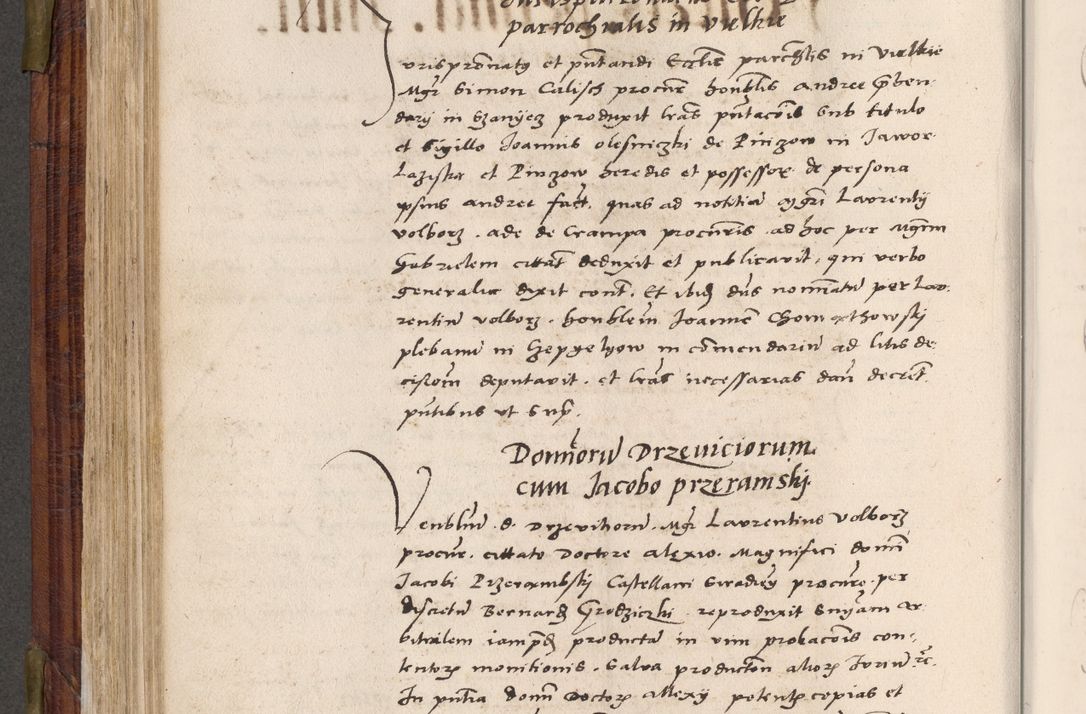 parrochialis in vielkie
urispronatg et pntandi Ecclie parochlis in Vielkie
Mgr Simon Calisch procur honblis andree preben
dary in Szanyecz produxit lras pntacois sub titulo
et Sigillo Joannis olesniczki de Pinczow in Jawor
Laziska et Pinczow heredis et possessor de persona
ipsius andree fact. quas ad notitia mgri Laurentij
volborz . ade de Crampa procuris . ad hoc per Mgrm
Gabrielem cittat deduxit et publicavit . qui verbo
generalia dixit cont. Et ibid dns nominatu per Lau
rentiu volborz . honblem Joannem
plebanu in in comendariu ad litis de
cisiom deputavit . et lras necessarias dari decret.
pntibus ut supr.
Dominoru Drzeviciorum
cum Jacobo przerambski.
Venbliu . d . Drzevitioru . Mgr Laurentius Volborz
procur . cittato Doctore alexio . Magnifici domi
Jacobi Przerambskij Castellani Siradien procure . per
discretu Bernard Grodziczki . reproduxit sniam ar
bitralem iampd producta in vim probacois con
tentor monitionis . Salva producton alior Juriu rc.
In pntia domi Doctor allexij potent copias et